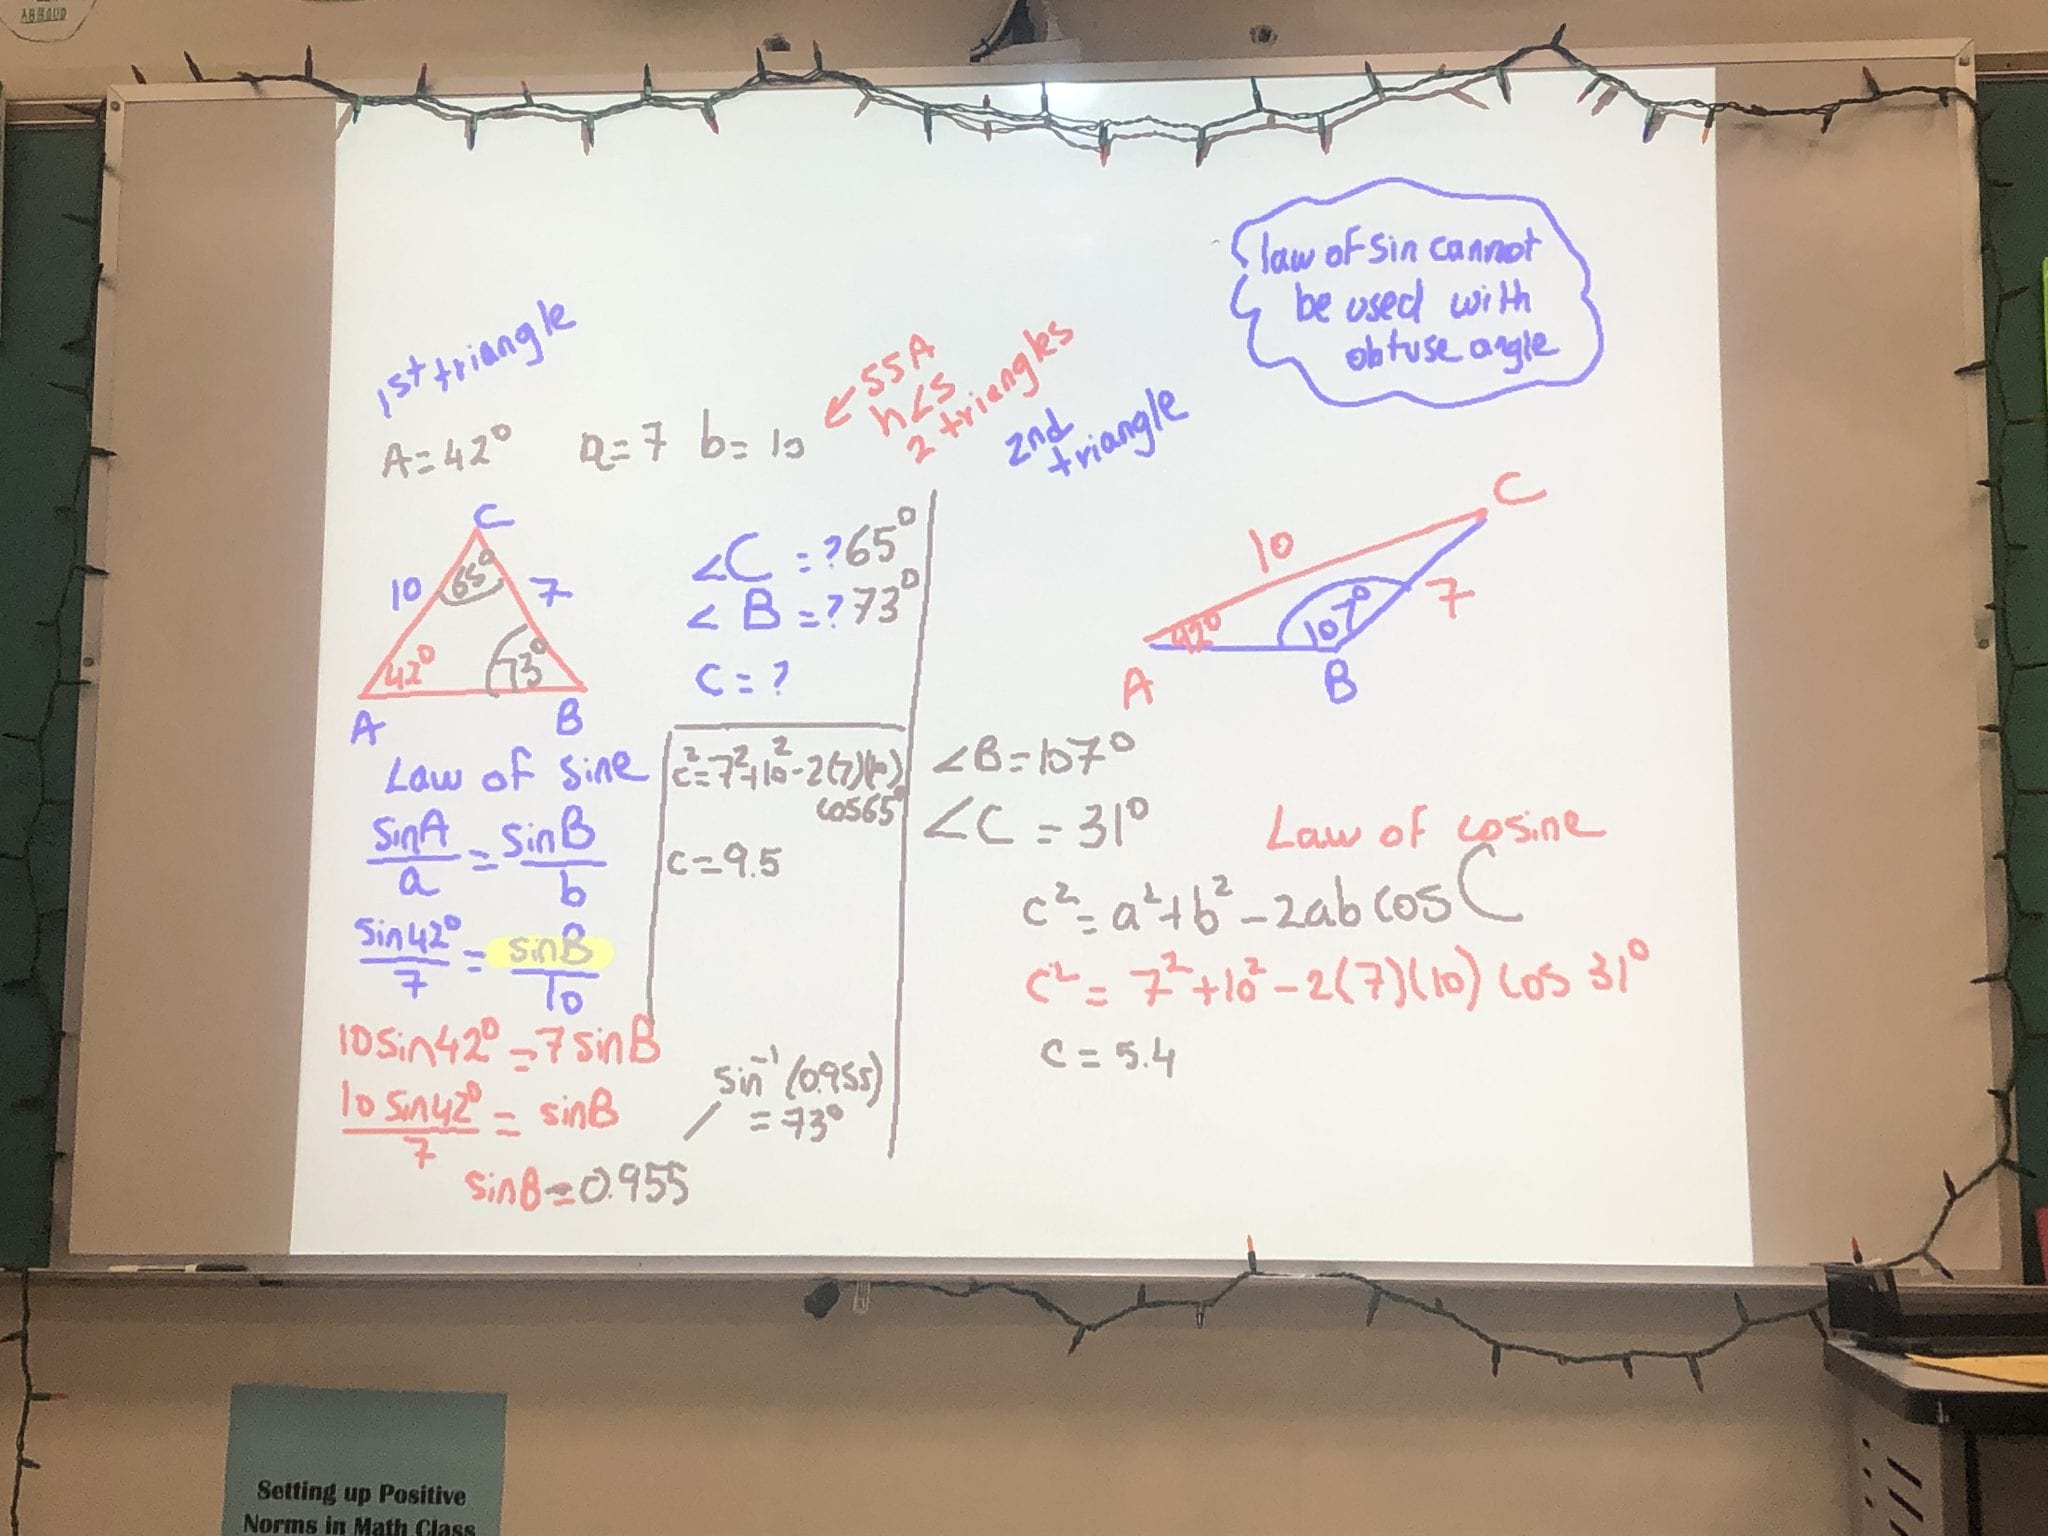 law of sin cannot
be used with
obtuse angle
1st triangle
A=42° a=7 b=10
← SSA
h<s
2 triangles
2nd
triangle
C
10
65°
7
42°
73°
A
B
∠C =? 65°
∠B =? 73°
C = ?
Law of sine
sinA/a = sinB/b
sin42°/7 = sinB/10
10sin42° = 7sinB
10sin42°/7 = sinB
sinB=0.955
c²=7²+10²-2(7)(10)
cos65°
c=9.5
sin⁻¹(0.955)
=73°
C
10
7
42°
107°
A
B
∠B=107°
∠C = 31°
Law of cosine
c²= a²+b²-2ab cos C
c² = 7²+10²-2(7)(10) cos 31°
c = 5.4
Setting up Positive
Norms in Math Class